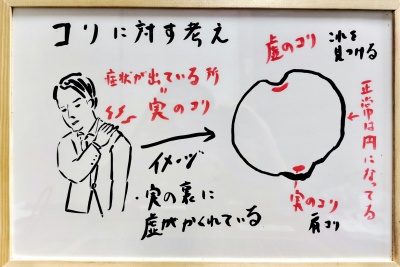 コリに対す考え
症状が出ている所
〃
実のコリ
イメージ
・実の裏に
虚がかくれている
虚のコリ
これを
見つける
正常は円になってる
実のコリ
肩コリ